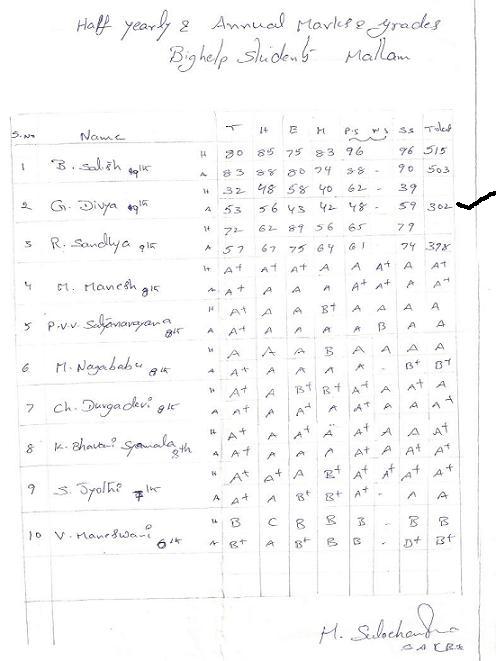 Half yearly & Annual Marks & grades
Bighelp Students Mallam
S.No Name T H E M P.S N.S SS Total
H 80 85 75 83 96 96 515
1 B. Satish 9th A 83 88 80 74 88 - 90 503
H 32 48 58 40 62 - 39
2 G. Divya 9th A 53 56 43 42 48 - 59 302
H 72 62 89 56 65 79
3 R. Sandhya 9th A 57 67 75 64 61 74 398
H A+ A+ A+ A A A+ A A+
4 M. Manesh 8th A A+ A A A A+ A+ A A+
H A+ A A B+ A A A A
5 P.V.V. Satyanarayana 8th A A+ A A A A B A A
H A A A B A A A A
6 M. Nagababu 8th A A+ A A A A - B+ B+
H A+ A B+ B+ A A A+ A
7 Ch. Durgadevi 8th A A+ A A+ A A+ A A A+
H A+ A A+ A A+ A A A+
8 K. Bhavani Syamala 8th A A+ A A A A+ A+ A+ A+
H A+ A+ A B+ A+ A A+ A+
9 S. Jyothi 7th A A+ A B+ B+ A+ - A A
H B C B B B - B B
10 V. Maneswari 6th A B+ A B+ B B - B+ B+
M. Sulochandra